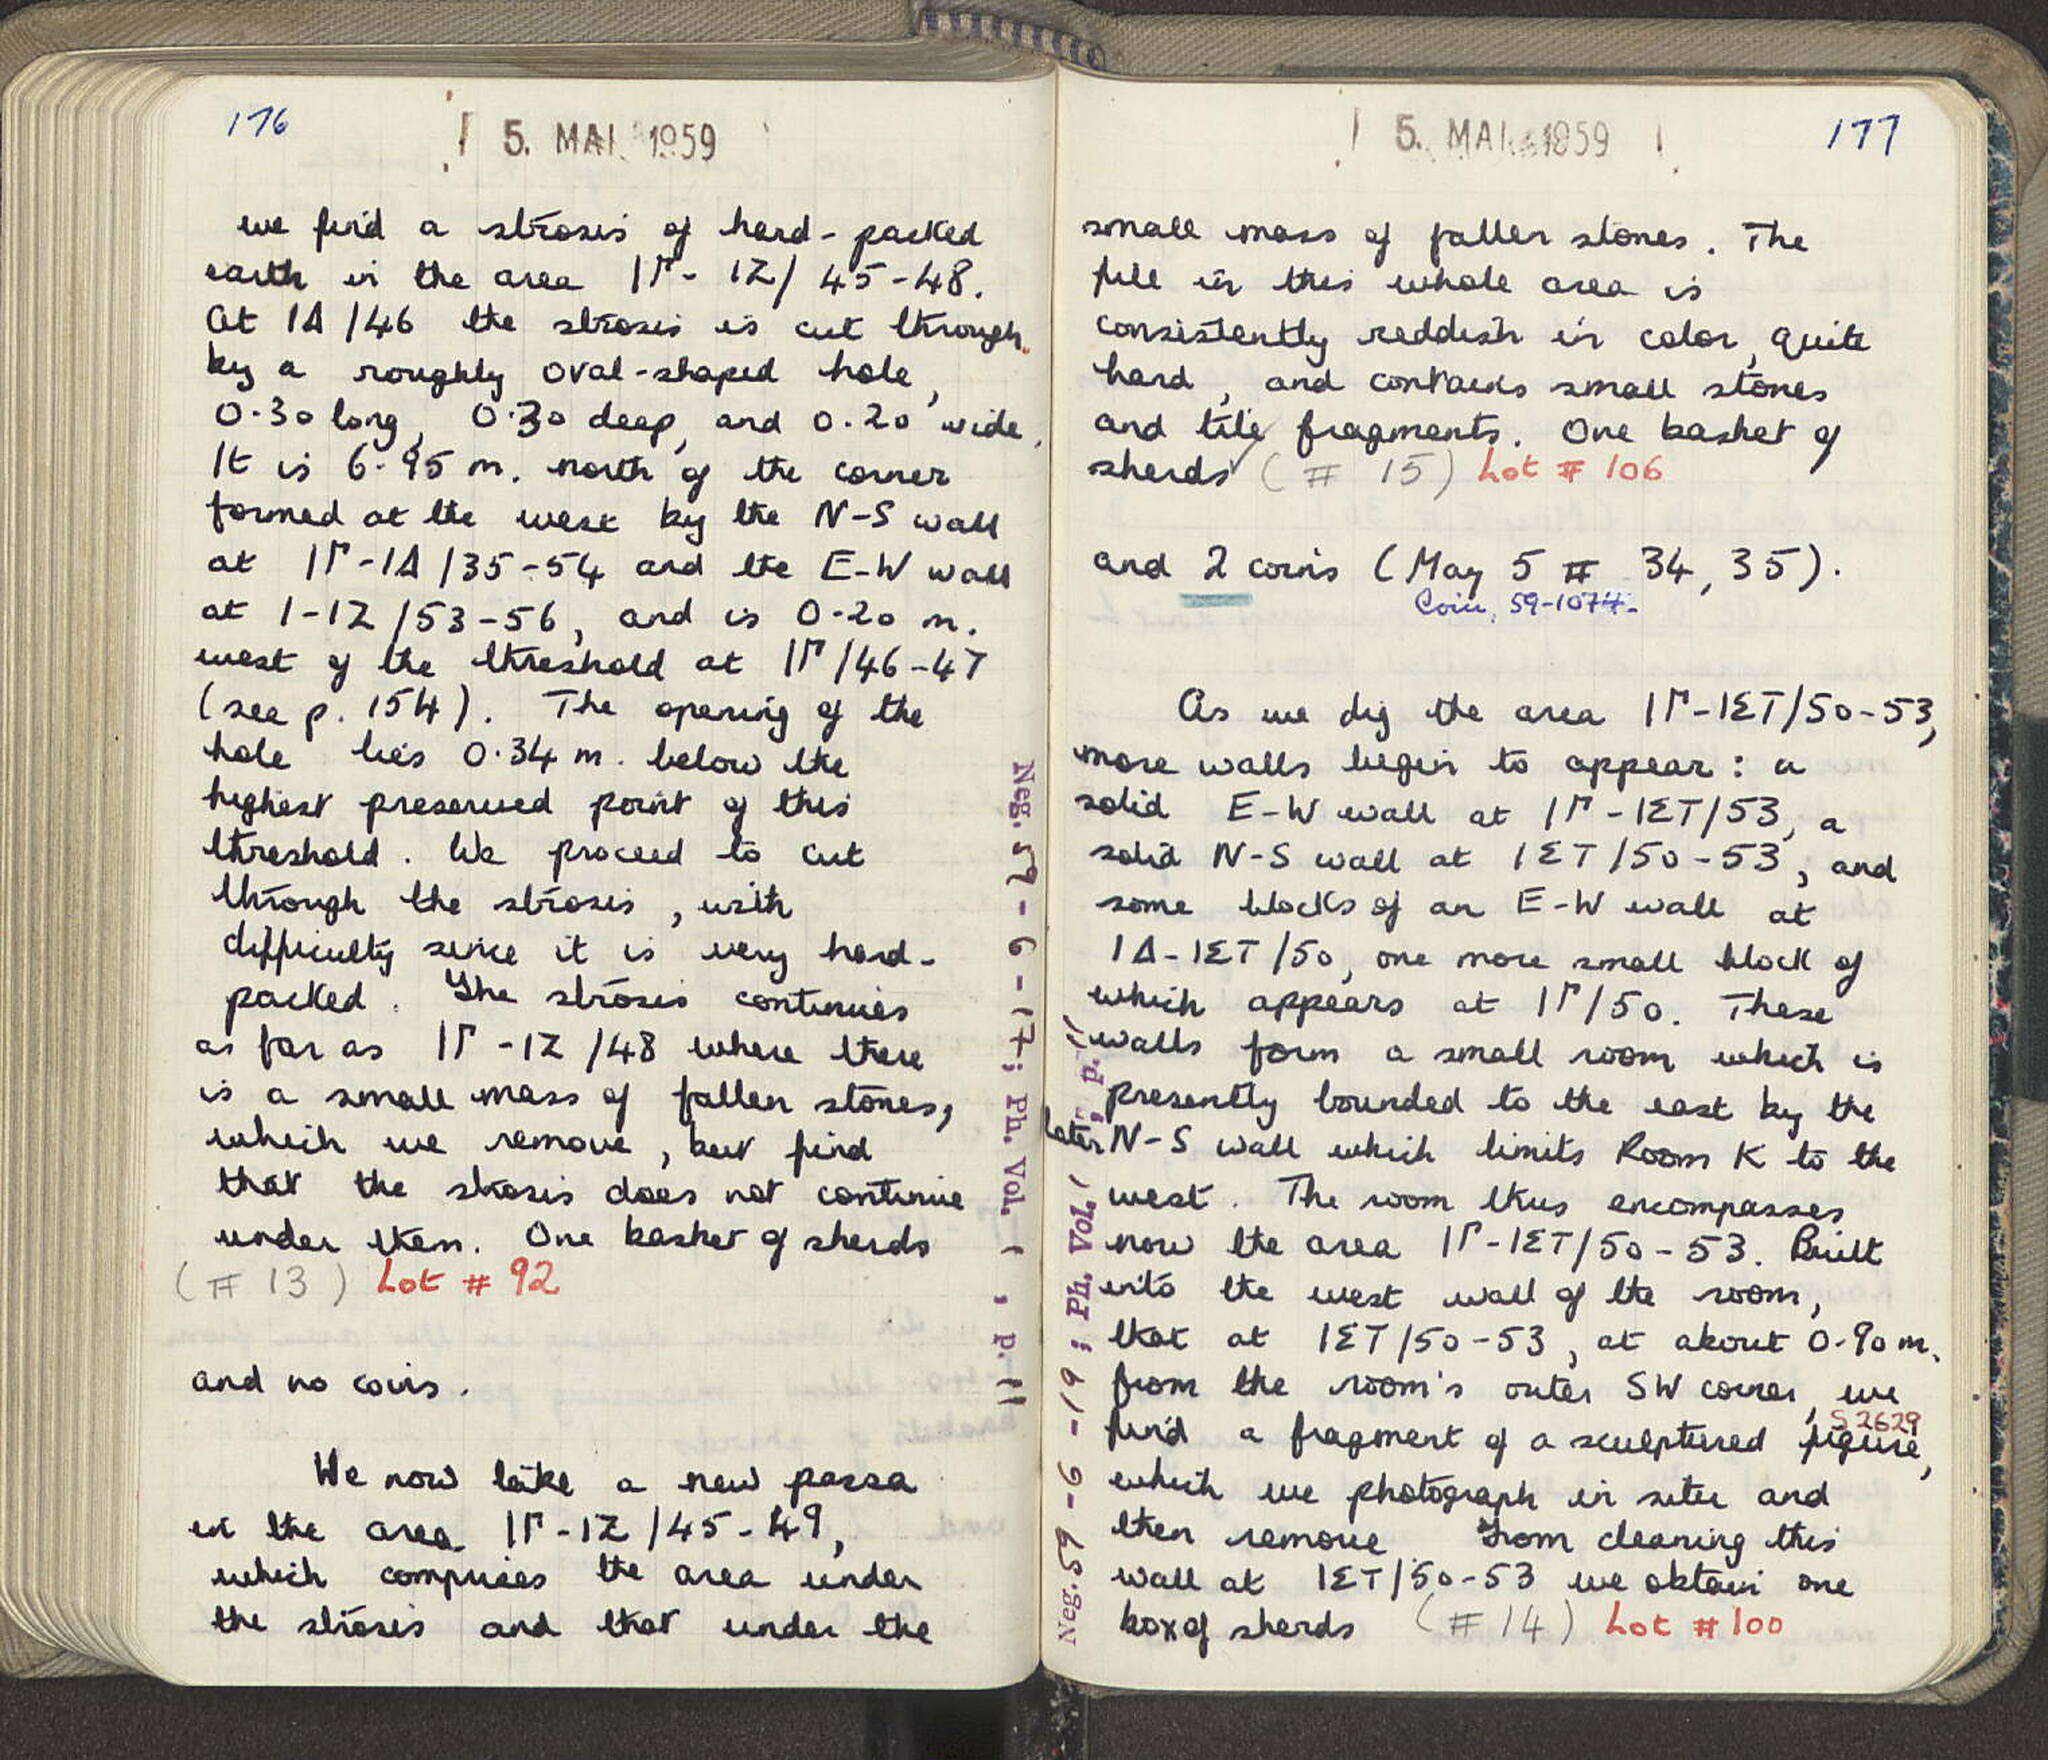 176
5. MAI 1959
we find a strosis of hard-packed
earth in the area ΙΓ-ΙΖ/45-48.
At ΙΔ/46 the strosis is cut through
by a roughly oval-shaped hole,
0.30 long, 0.30 deep, and 0.20 wide.
It is 6.95 m. north of the corner
formed at the west by the N-S wall
at ΙΓ-ΙΔ/35-54 and the E-W wall
at Ι-ΙΖ/53-56, and is 0.20 m.
west of the threshold at ΙΓ/46-47
(see p. 154). The opening of the
hole lies 0.34 m. below the
highest preserved point of this
threshold. We proceed to cut
through the strosis, with
difficulty since it is very hard-
packed. The strosis continues
as far as ΙΓ-ΙΖ/48 where there
is a small mass of fallen stones,
which we remove, but find
that the strosis does not continue
under them. One basket of sherds
(# 13) Lot # 92
and no coins.
We now take a new passa
in the area ΙΓ-ΙΖ/45-49,
which comprises the area under
the strosis and that under the
Neg. 59-6-17; Ph. Vol. I, p. 11
177
5. MAI 1959
small mass of fallen stones. The
fill in this whole area is
consistently reddish in color, quite
hard, and contains small stones
and tile fragments. One basket of
sherds (# 15) Lot # 106
and 2 coins (May 5 # 34, 35).
Coin, 59-1074.
As we dig the area ΙΓ-ΙΣΤ/50-53,
more walls begin to appear: a
solid E-W wall at ΙΓ-ΙΣΤ/53, a
solid N-S wall at ΙΣΤ/50-53, and
some blocks of an E-W wall at
ΙΔ-ΙΣΤ/50, one more small block of
which appears at ΙΓ/50. These
walls form a small room which is
presently bounded to the east by the
later N-S wall which limits Room K to the
west. The room thus encompasses
now the area ΙΓ-ΙΣΤ/50-53. Built
into the west wall of the room,
that at ΙΣΤ/50-53, at about 0.90 m.
from the room's outer SW corner, we
S 2629
find a fragment of a sculptured figure,
which we photograph in situ and
then remove From cleaning this
wall at ΙΣΤ/50-53 we obtain one
box of sherds (# 14) Lot # 100
Neg. 59-6-19; Ph. Vol. I, p. 11